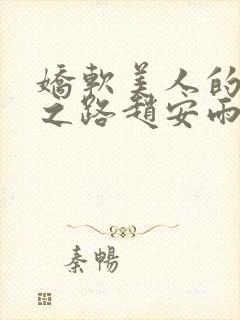 嬌軟美人的
之路趙安雨
秦暢